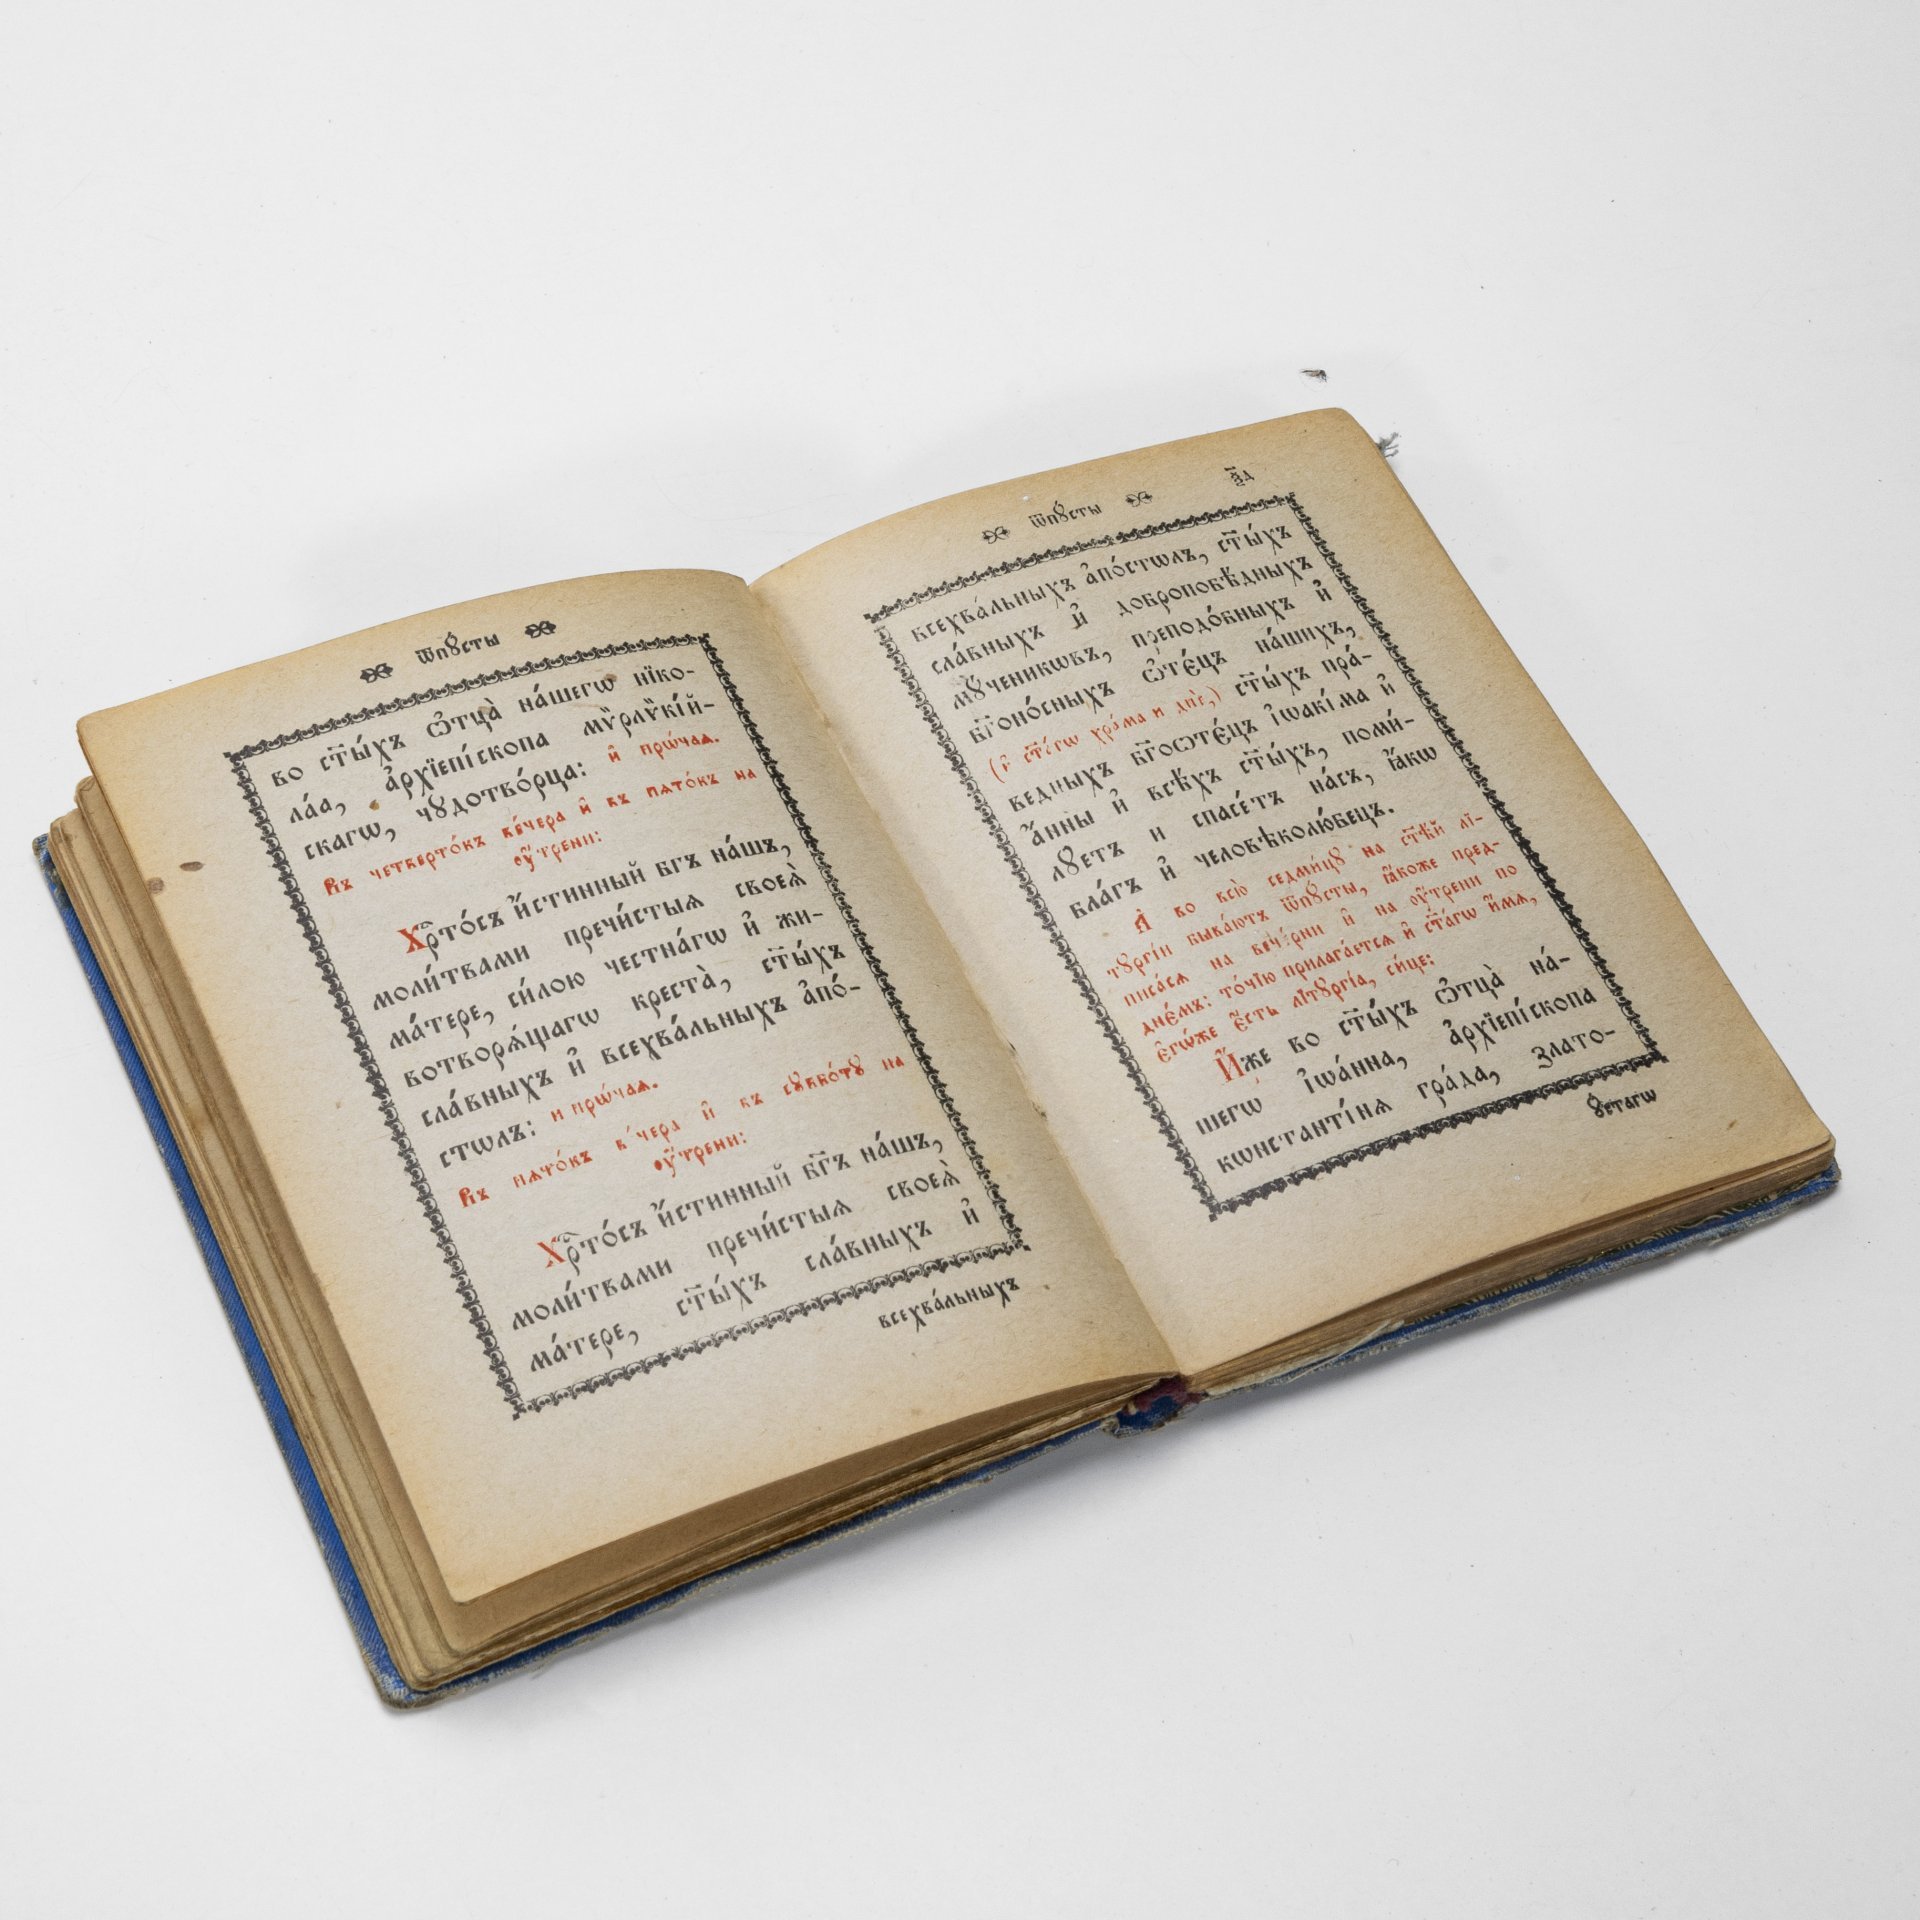 ѿпꙋсты
во ст҃ы́хъ ѻ҆тца̀ на́шегѡ нїко-
ла́а, а҆рхїепі́скопа мѵ̈рлѵ̈кі́й-
скагѡ, чꙋдотво́рца: и҆ прѡ́чаѧ.
Въ четверто́къ ве́чера и҆ въ пѧто́къ на
оу҆́трени:
Хрⷭ҇то́съ и҆́стинный бг҃ъ на́шъ,
моли́твами пречи́стыѧ своеѧ̀
ма́тере, си́лою честна́гѡ и҆ жи-
вотворѧ́щагѡ креста̀, ст҃ы́хъ
сла́вныхъ и҆ всехва́льныхъ а҆по́-
стѡлъ: и прѡ́чаѧ.
Въ пѧто́къ ве́чера и҆ въ сꙋббо́тꙋ на
оу҆́трени:
Хрⷭ҇то́съ и҆́стинный бг҃ъ на́шъ,
моли́твами пречи́стыѧ своеѧ̀
ма́тере, ст҃ы́хъ сла́вныхъ и҆
всехва́льныхъ
ѿпꙋсты
всехва́льныхъ а҆по́стѡлъ, ст҃ы́хъ
сла́вныхъ и҆ добропобѣ́дныхъ
мꙋ́ченикѡвъ, преподо́бныхъ и҆
бг҃оно́сныхъ ѻ҆те́цъ на́шихъ,
(и҆ ст҃а́гѡ хра́ма и днѐ,) ст҃ы́хъ пра́-
ведныхъ бг҃оѻте́цъ і҆ѡакі́ма и҆
а҆́нны и҆ всѣ́хъ ст҃ы́хъ, поми́-
лꙋетъ и спасе́тъ на́съ, ꙗ҆́кѡ
бла́гъ и҆ человѣколю́бецъ.
А҆ во всю̀ седми́цꙋ на ст҃ѣ́й лі-
тꙋргі́и быва́ютъ ѿпꙋ́сты, ꙗ҆́коже пред-
писа́сѧ на вече́рни и҆ на оу҆́трени по
дне́мъ: то́чїю прилага́етсѧ и҆ ст҃а́гѡ и҆́мѧ,
є҆гѡ́же є҆́сть лїтꙋргі́а, си́це:
И҆́же во ст҃ы́хъ ѻ҆тца̀ на-
шегѡ і҆ѡа́нна, а҆рхїепі́скопа
кѡнстанті́нѧ гра́да, злато-
ꙋ́стагѡ